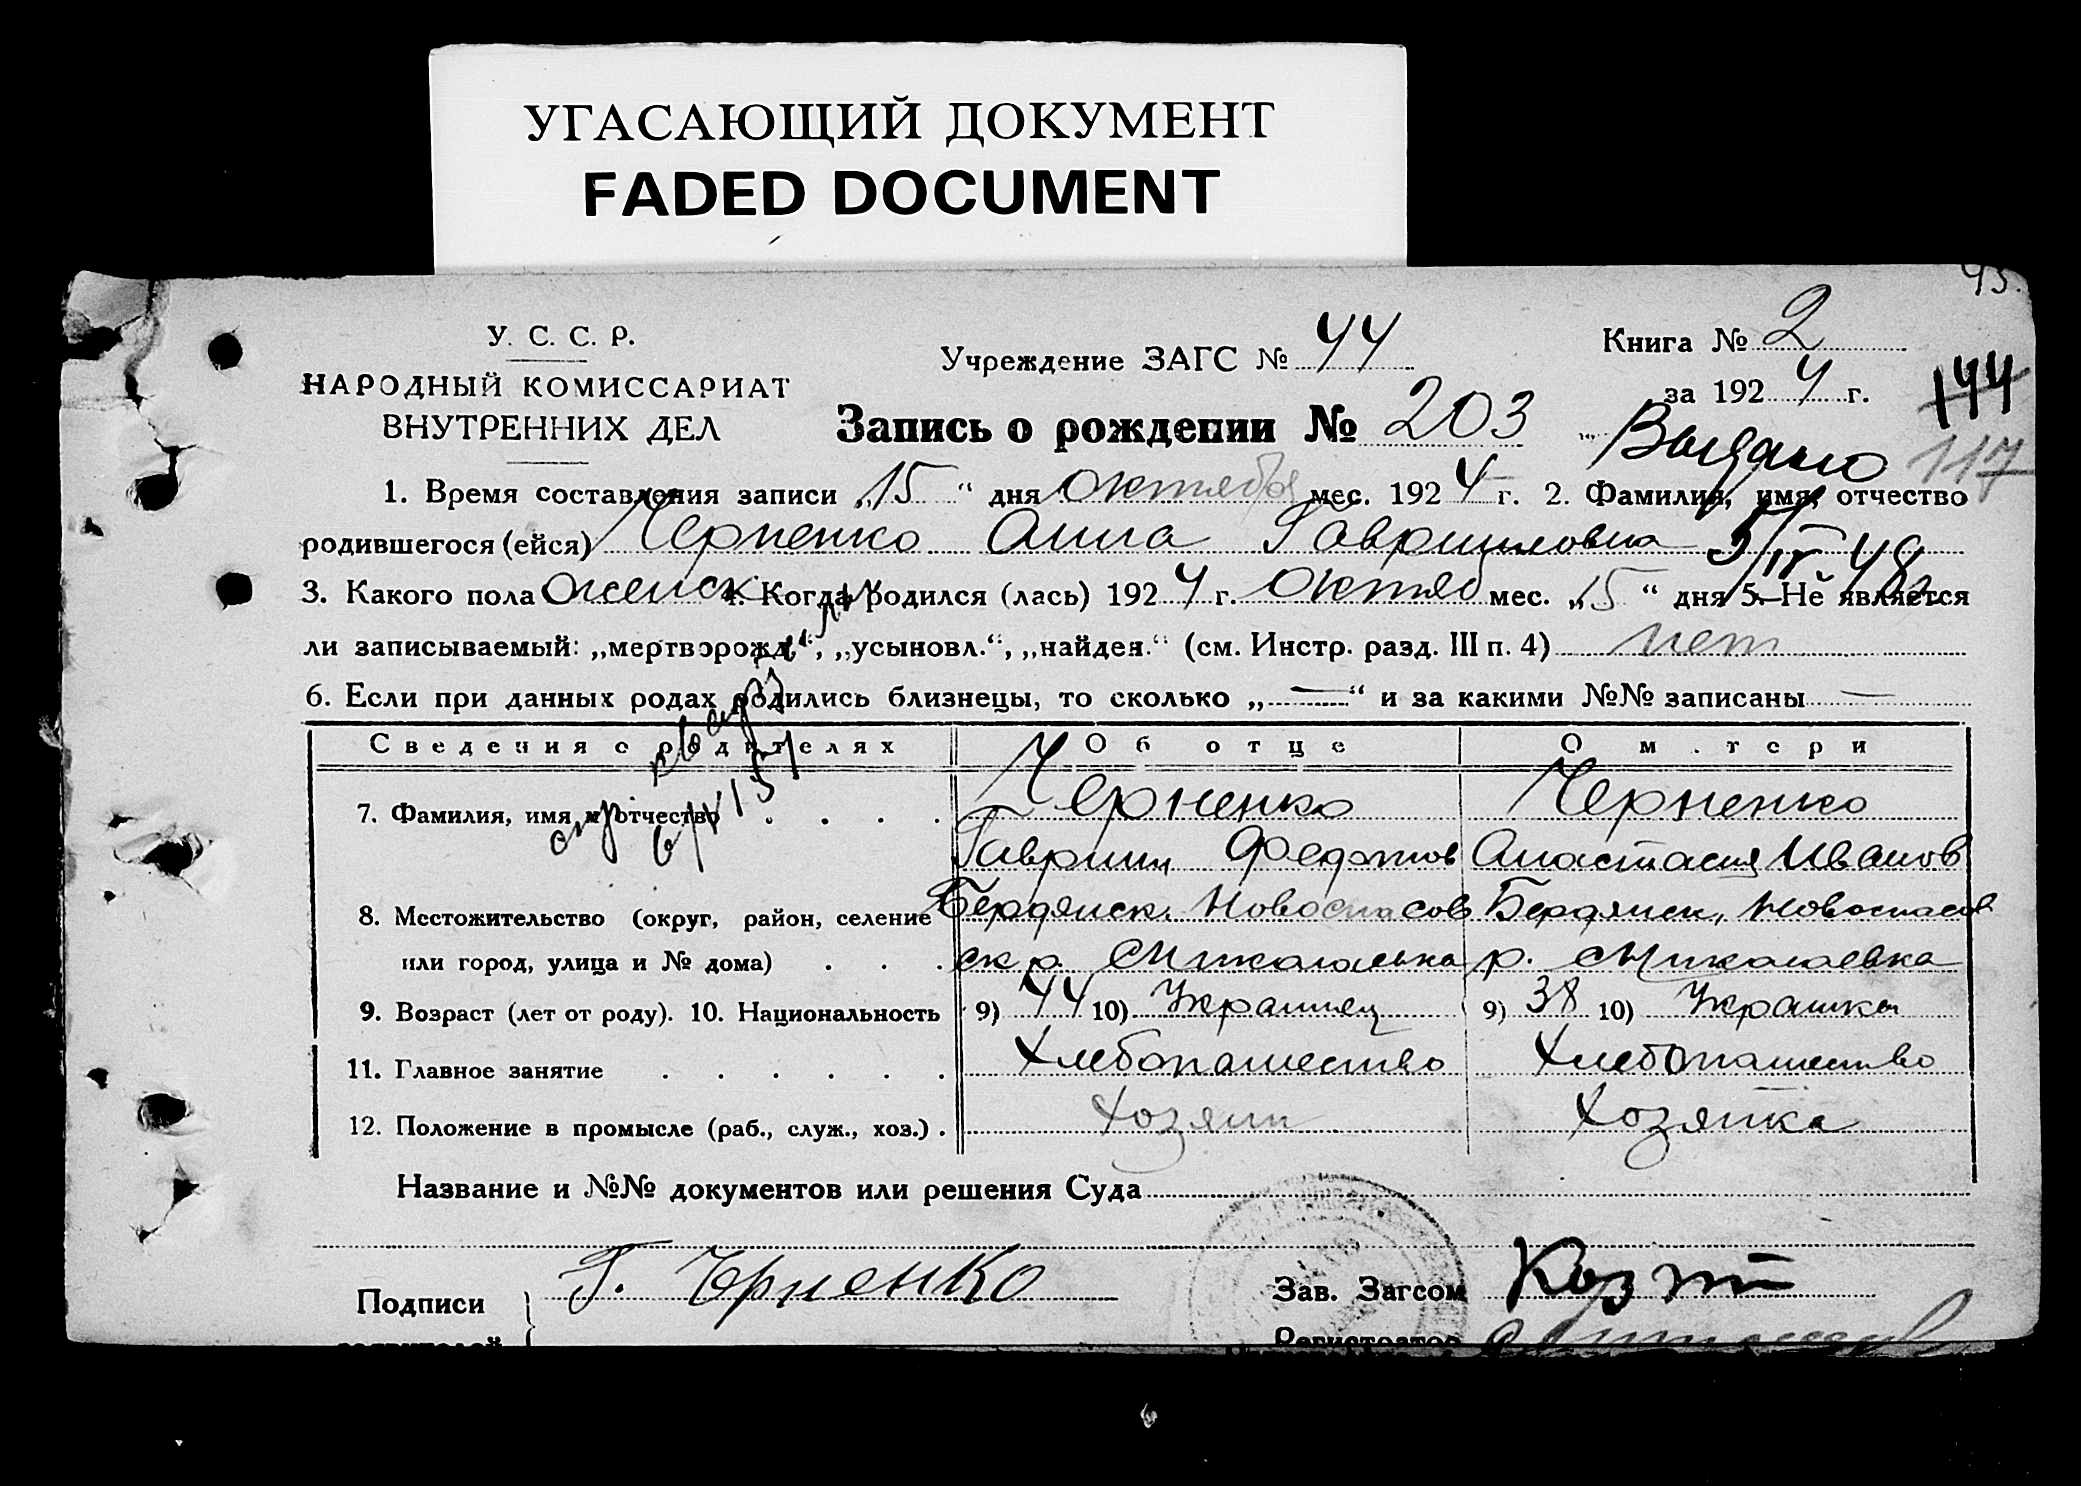 УГАСАЮЩИЙ ДОКУМЕНТ
FADED DOCUMENT
У. С. С. Р.
НАРОДНЫЙ КОМИССАРИАТ
ВНУТРЕННИХ ДЕЛ
Учреждение ЗАГС № 44
Книга № 2
за 1924 г.
144
117
Запись о рождении № 203
Выдано
5/IV 48г
1. Время составления записи „15“ дня октября мес. 1924 г. 2. Фамилия, имя, отчество
родившегося (ейся) Черненко Анна Гавриловна
3. Какого пола женск 4. Когда родился (лась) 1924 г. Октяб мес. „15“ дня 5. Не является
ли записываемый: „мертворожд.“, „усыновл.“, „найден.“ (см. Инстр. разд. III п. 4) нет
6. Если при данных родах родились близнецы, то сколько „—“ и за какими №№ записаны —
Сведения о родителях Об отце О м.тери
7. Фамилия, имя и отчество Черненко Черненко
Гавриил Федотов Анастасия Иванов
8. Местожительство (округ, район, селение Бердянск. Новоспасов Бердянск, Новоспасов
или город, улица и № дома) ск р. с Николаевка р. с Николаевка
9. Возраст (лет от роду). 10. Национальность 9) 44 10) Украинец 9) 38 10) Украинка
11. Главное занятие Хлебопашество Хлебопашество
12. Положение в промысле (раб., служ., хоз.) Хозяин Хозяйка
Название и №№ документов или решения Суда
Подписи Г. Черненко Зав. Загсом
Регистратор